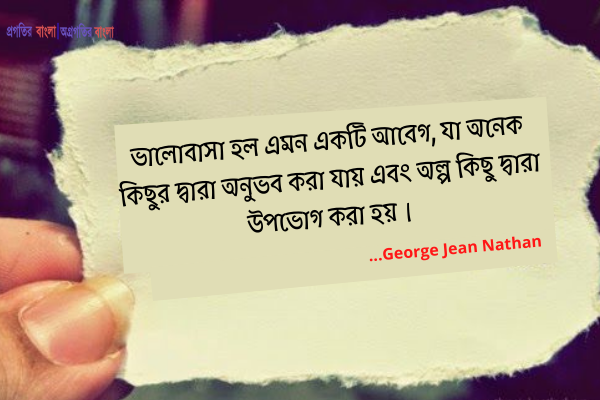 প্রগতির বাংলা অগ্রগতির বাংলা
ভালোবাসা হল এমন একটি আবেগ, যা অনেক
কিছুর দ্বারা অনুভব করা যায় এবং অল্প কিছু দ্বারা
উপভোগ করা হয় ।
...George Jean Nathan